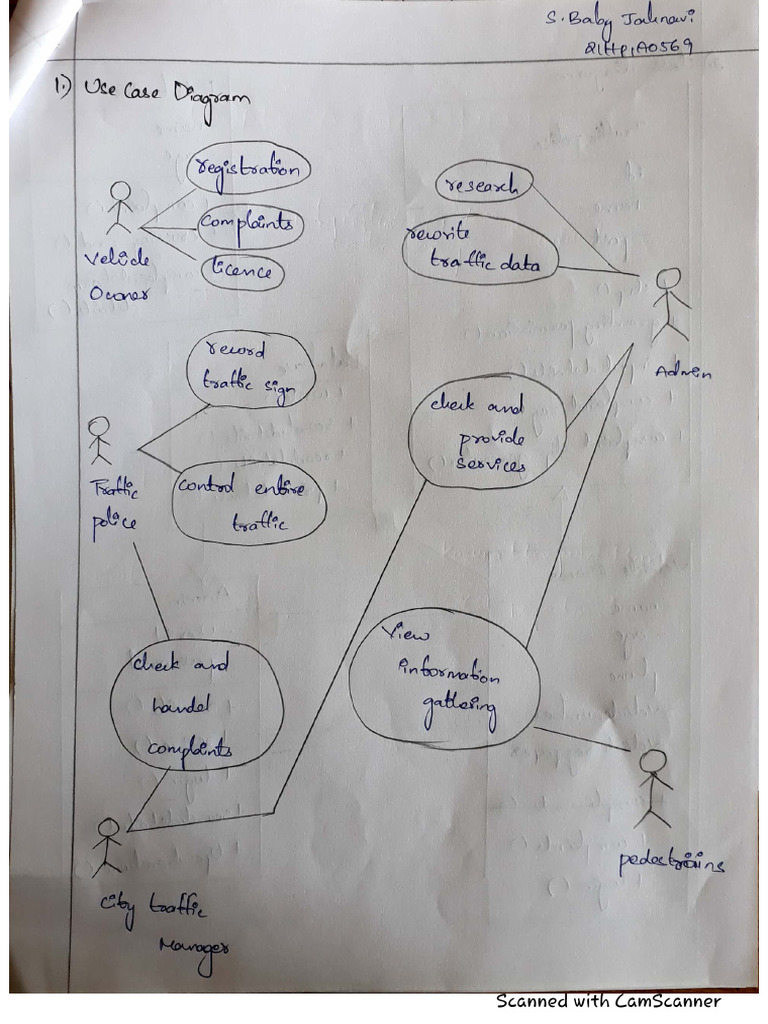 S. Baby Jahnavi
21HP1A0569
1.) Use Case Diagram
registration
complaints
licence
Vehicle
Owner
research
rewrite
traffic data
Admin
record
traffic sign
control entire
traffic
Traffic
police
check and
provide
services
check and
handel
complaints
View
information
gathering
City traffic
Manager
pedestriins
Scanned with CamScanner